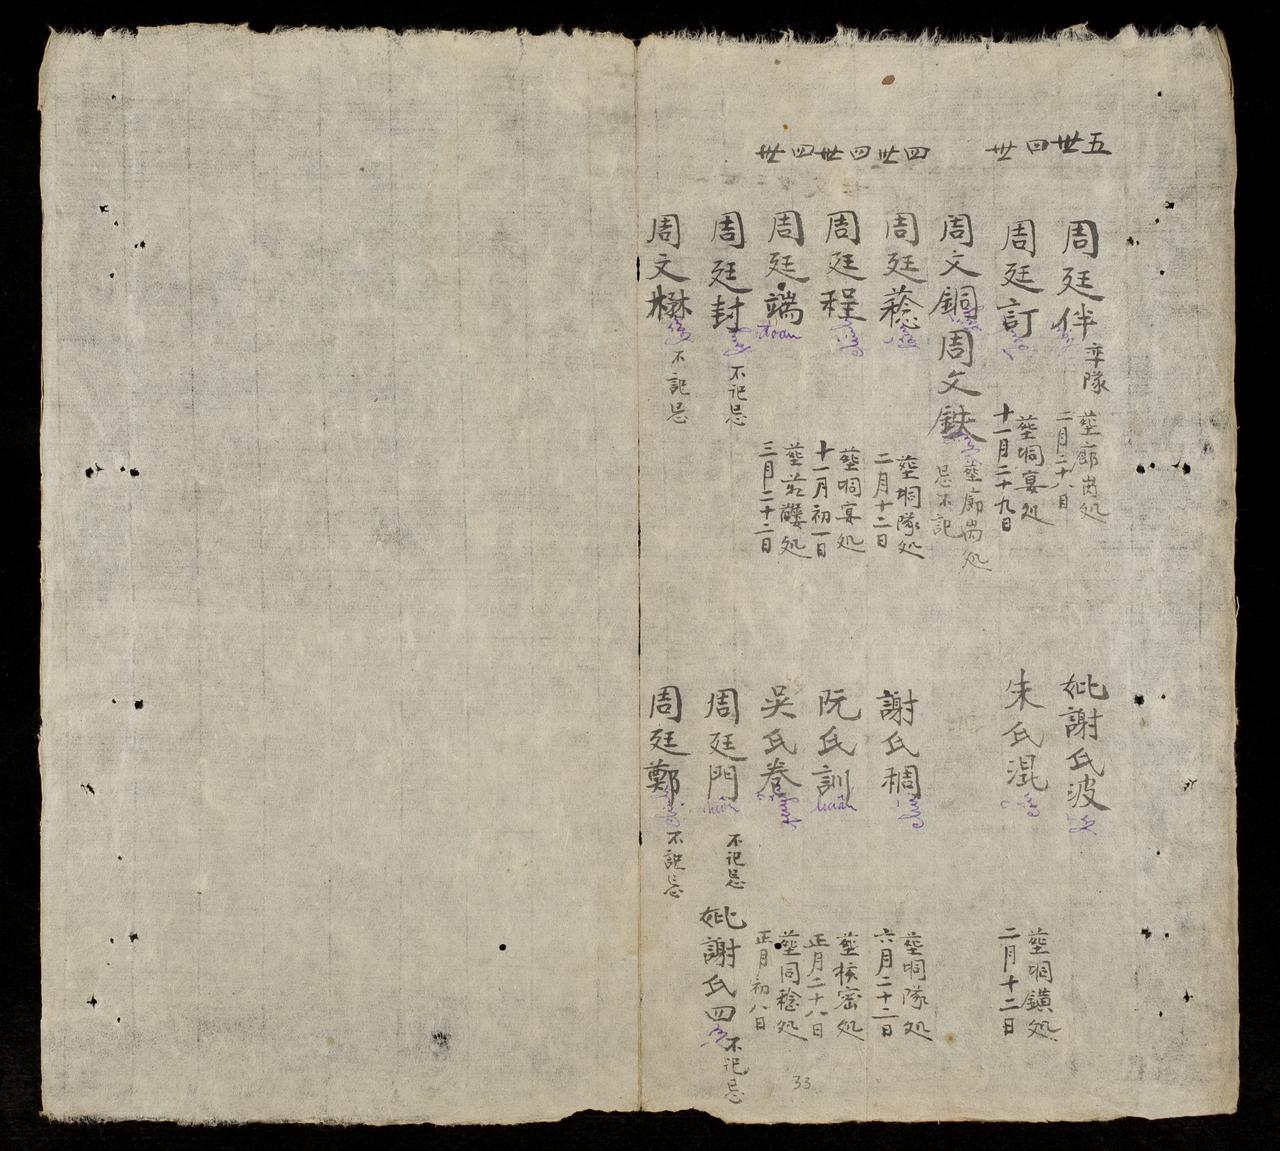 五世
周廷伴
弈隊
塟廊岗処
二月二十八日
妣謝氏波
四世
周廷訂
塟垌宴処
十一月二十九日
朱氏混
塟垌鐄処
二月十二日
周文銅周文鉄
塟廊岗処
忌不記
四世
周廷薐
塟垌隊処
二月十二日
謝氏稠
塟垌隊処
六月二十二日
四世
周廷程
塟垌宴処
十一月初一日
阮氏訓
huấn
塟核密処
正月二十八日
四世
周廷端
đoan
三月二十二日
吴氏卷
塟同稔処
正月初八日
周廷封
不记忌
周廷門
不记忌
妣謝氏四
不记忌
周文楙
不記忌
周廷鄭
不記忌
33